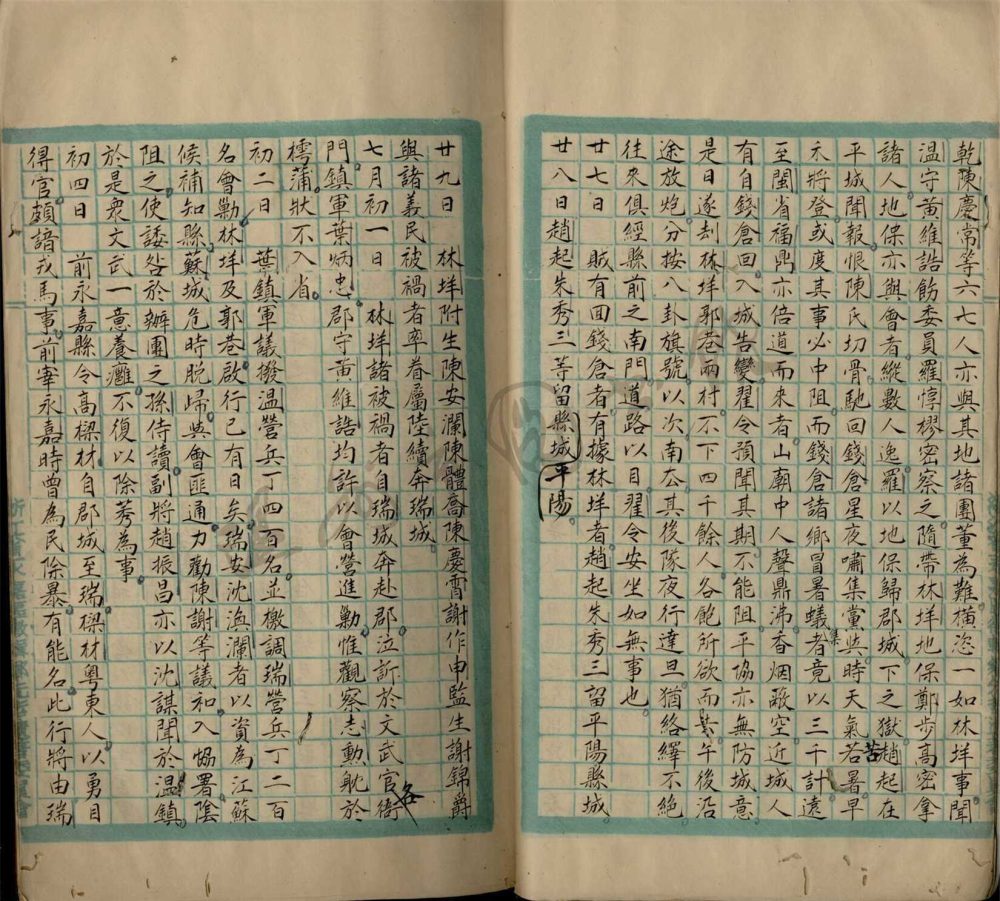 乾陳慶常等六七人亦與其地諸團董為難橫恣一如林垟事聞
溫守黃維誥飭委員羅惇樛密察之隨帶林垟地保鄭步高密拿
諸人地保亦與會者縱數人逸羅以地保歸郡城下之獄趙起在
平城聞報恨陳氏切骨馳回錢倉星夜嘯集黨與時天氣若暑早
禾將登或度其事必中阻而錢倉諸鄉冒暑蟻集者竟以三千計遠
至閩省福鼎亦倍道而來者山廟中人聲鼎沸香烟蔽空近城人
有自錢倉回入城告變翟令預聞其期不能阻平協亦無防城意
是日遂刦林垟郭巷兩村不下四千餘人各飽所欲而縶午後沿
途放炮分按八卦旗號以次南去其後隊夜行達旦猶絡繹不絕
往來俱經縣前之南門道路以目翟令安坐如無事也
廿七日 賊有回錢倉者有據林垟者趙起朱秀三留平陽縣城
廿八日趙起朱秀三等留縣城平陽
廿九日 林垟附生陳安瀾陳體喬陳慶霄謝作申監生謝錦爵
與諸義民被禍者率眷屬陸續奔瑞城
七月初一日 林垟諸被禍者自瑞城奔赴郡泣訴於文武官衙
門鎮軍葉炳忠郡守黃維誥均許以會營進勦惟觀察志勳躭於
樗蒲狀不入省
初二日 葉鎮軍議撥溫營兵丁四百名並檄調瑞營兵丁二百
名會勦林垟及郭巷啟行已有日矣瑞安沈渔瀾者以資為江蘇
候補知縣蘇城危時脫歸與會匪通力勸陳謝等議和入協署陰
阻之使諉咎於辦團之孫侍讀副將趙振昌亦以沈謀聞於溫鎮
於是眾文武一意養癰不復以除莠為事
初四日 前永嘉縣令高樑材自郡城至瑞樑材粵東人以勇目
得官頗諳戎馬事前宰永嘉時曾為民除暴有能名此行將由瑞